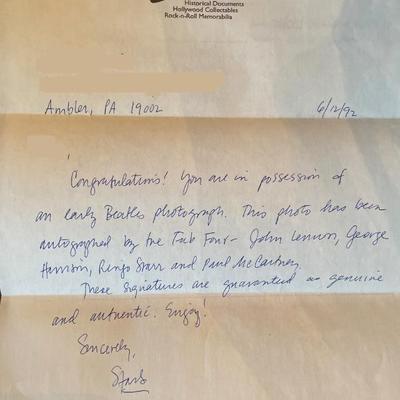 Historical Documents
Hollywood Collectables
Rock-n-Roll Memorabilia
Ambler, PA 19002 6/12/92
Congratulations! You are in possession of
an early Beatles photograph. This photo has been
autographed by the Fab Four- John Lennon, George
Harrison, Ringo Starr and Paul McCartney.
These signatures are guaranteed as genuine
and authentic. Enjoy!
Sincerely,
Stars